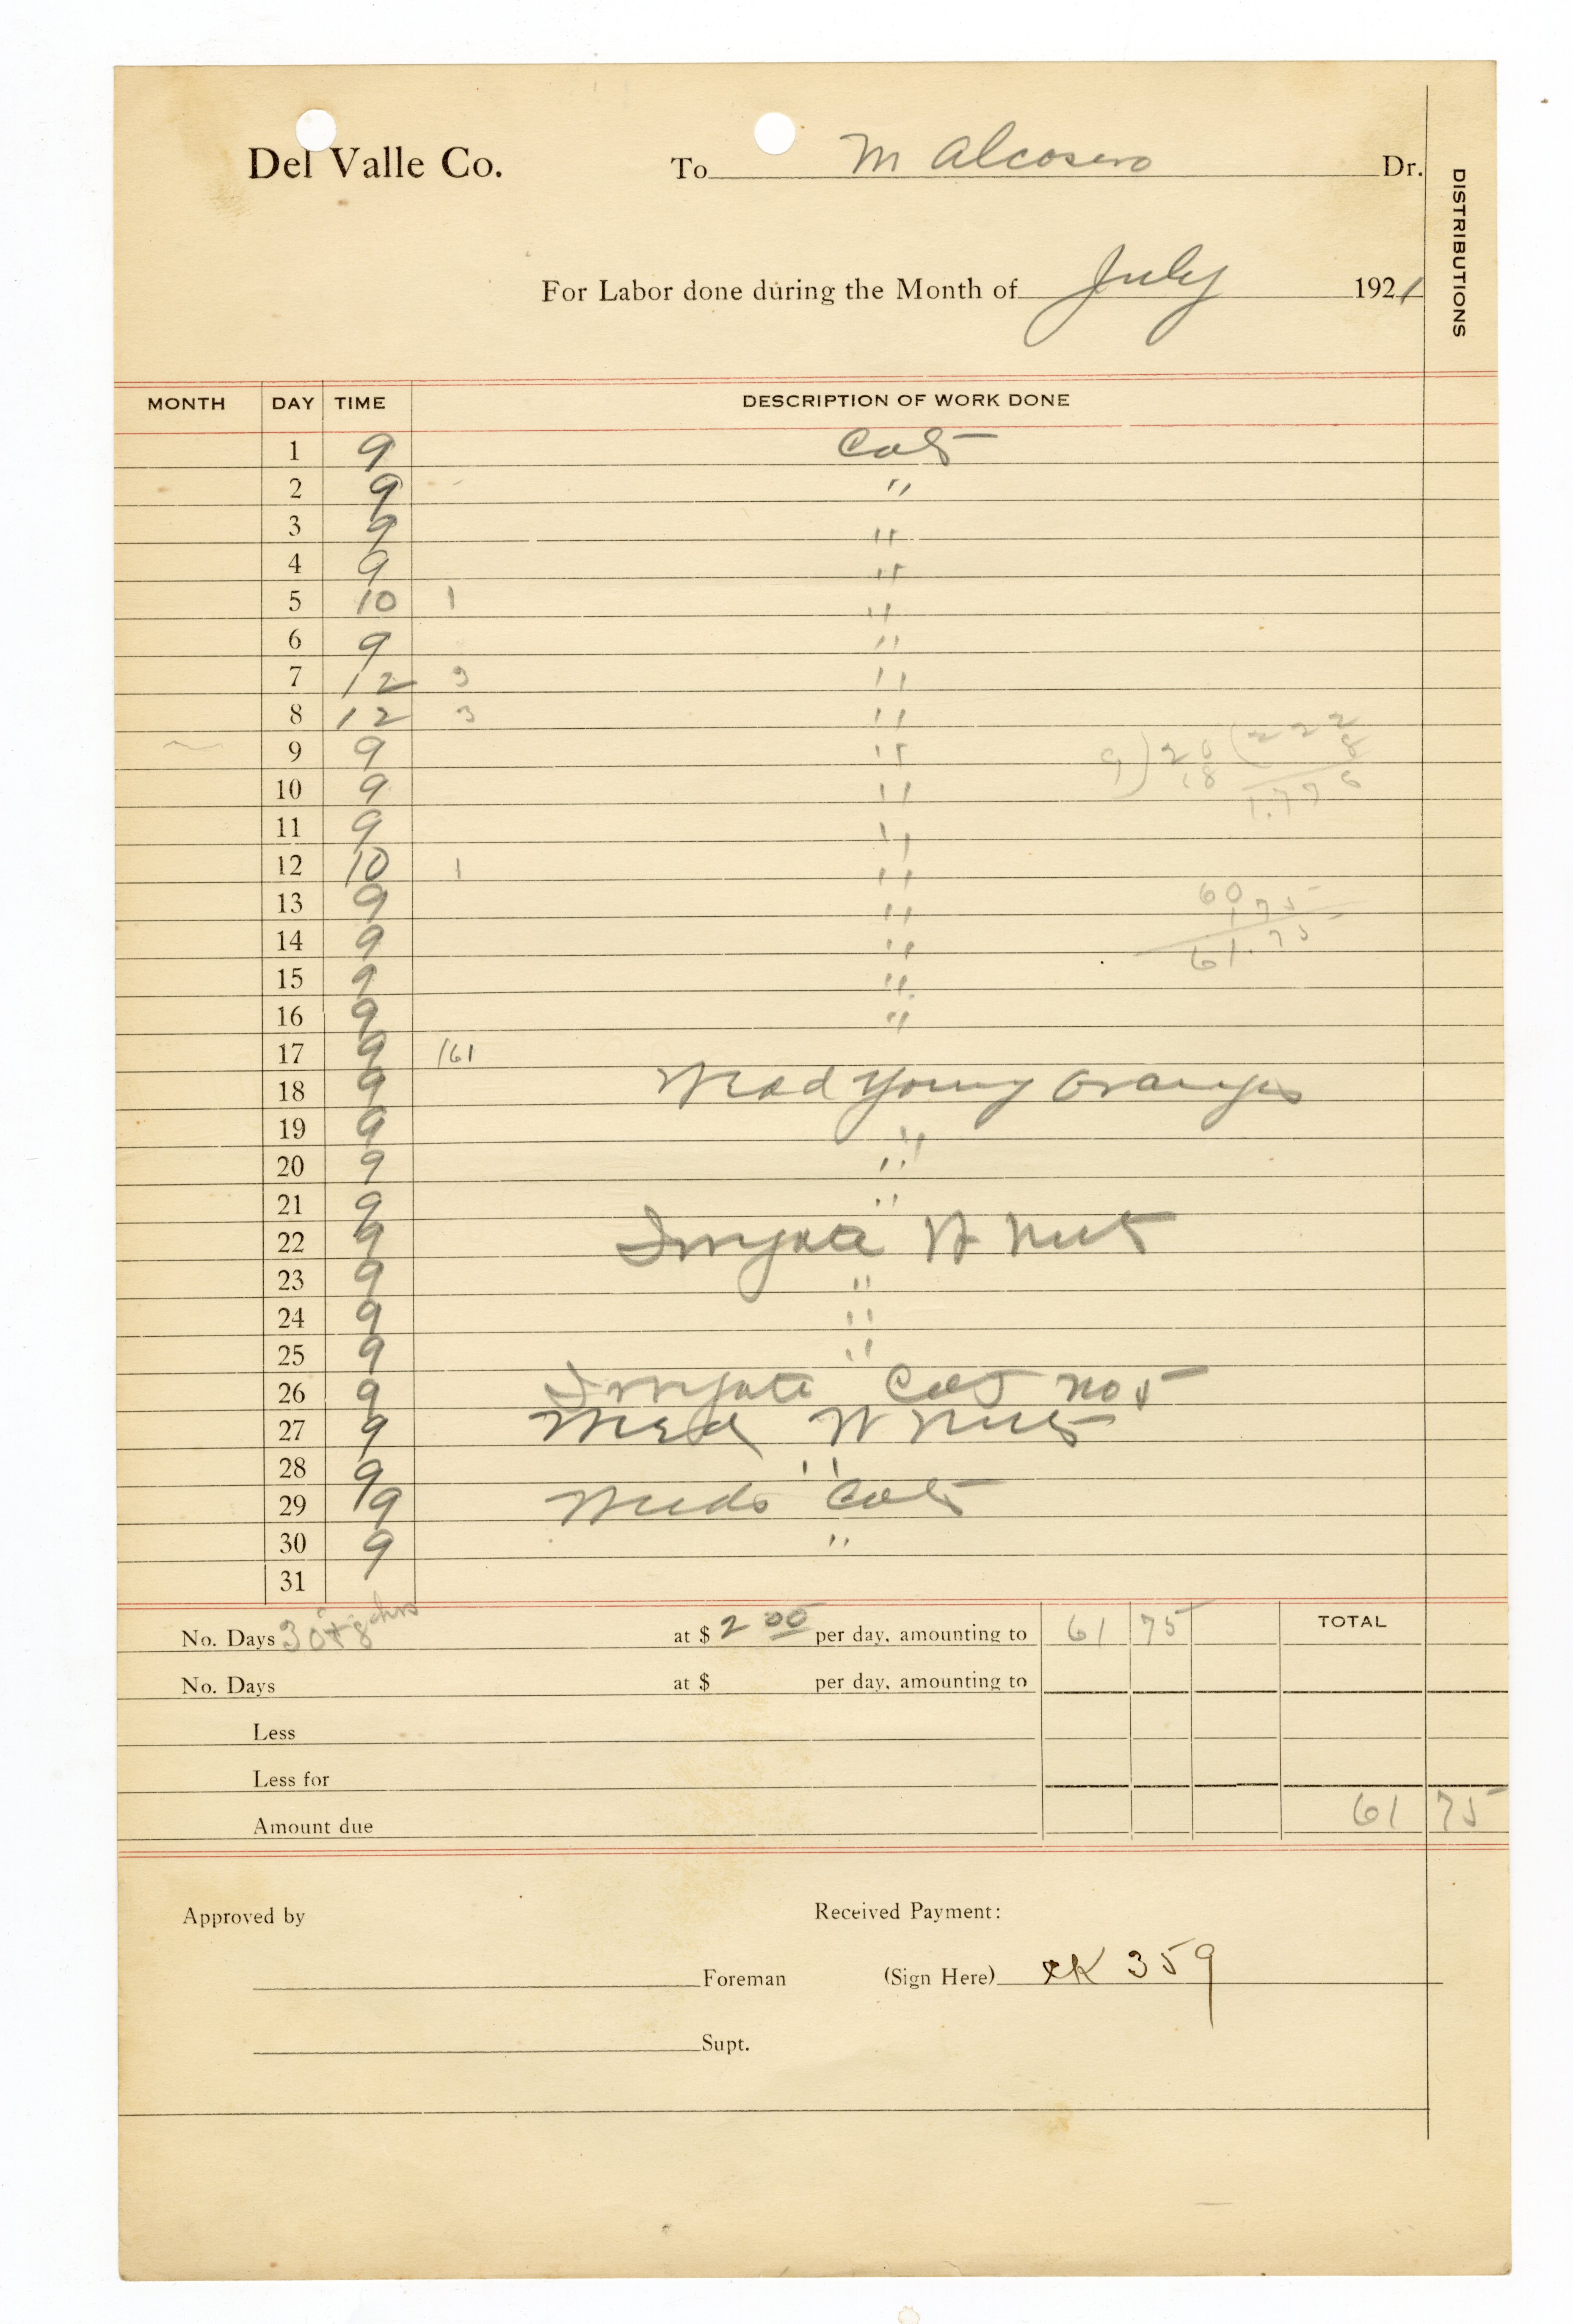 Del Valle Co. To M Alcosero Dr.
DISTRIBUTIONS
For Labor done during the Month of July 1921
MONTH DAY TIME DESCRIPTION OF WORK DONE
1 9 Cat
2 9 "
3 9 "
4 9 "
5 10 1 "
6 9 "
7 12 3 "
8 12 3 "
9 9 " 9)20(222
18 8
10 9 " 1.776
11 9 "
12 10 1 "
13 9 " 60
1 75
14 9 " 61.75
15 9 "
16 9 "
17 9 161
18 9 Young Oranges
19 9 "
20 9 "
21 9 "
22 9 Irrygate W Nut
23 9 "
24 9 "
25 9 "
26 9 Irrygate Cat no 5
27 9 W Nut
28 9 "
29 9 Weeds Cat
30 9 "
31
No. Days 30 + 8 hrs at $ 2 00 per day, amounting to 61 75 TOTAL
No. Days at $ per day, amounting to
Less
Less for
Amount due 61 75
Approved by Received Payment:
Foreman (Sign Here) ck 359
Supt.